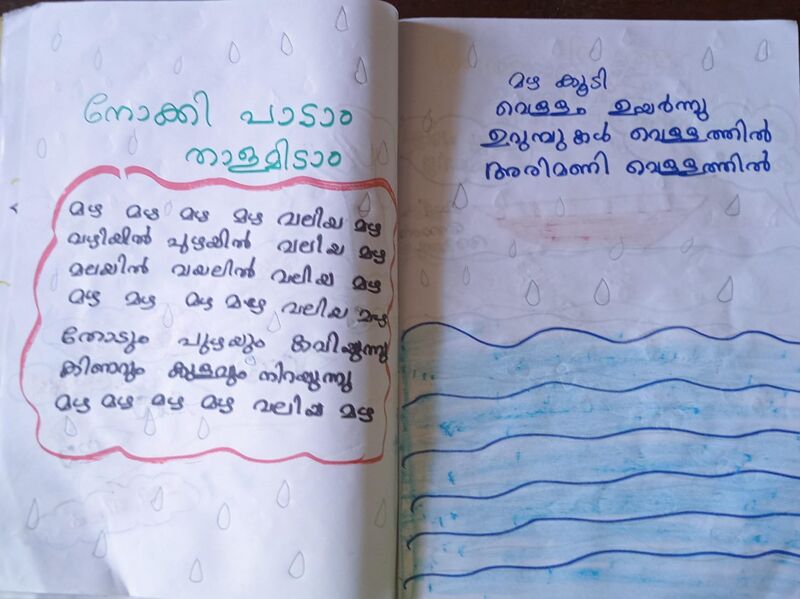 നോക്കി പാടാം
താളമിടാം
മഴ മഴ മഴ മഴ വലിയ മഴ
വഴിയിൽ പുഴയിൽ വലിയ മഴ
മലയിൽ വയലിൽ വലിയ മഴ
മഴ മഴ മഴ മഴ വലിയ മഴ
തോടും പുഴയും കവിയുന്നു
കിണറും കുളവും നിറയുന്നു
മഴ മഴ മഴ മഴ വലിയ മഴ
മഴ കൂടി
വെള്ളം ഉയർന്നു
ഉറുമ്പുകൾ വെള്ളത്തിൽ
അരിമണി വെള്ളത്തിൽ